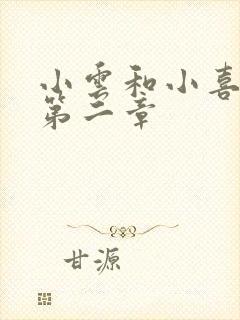 小雲和小喜
第二章
甘源